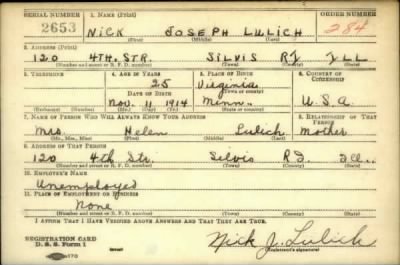 SERIAL NUMBER 1. NAME (Print) ORDER NUMBER
2653 NICK JOSEPH LULICH 284
(First) (Middle) (Last)
2. ADDRESS (Print)
120 4TH, STR. SILVIS RI ILL
(Number and street or R. F. D. number) (Town) (County) (State)
3. TELEPHONE 4. AGE IN YEARS 5. PLACE OF BIRTH 6. COUNTRY OF CITIZENSHIP
25 Virginia
DATE OF BIRTH (Town or county)
Nov. 11 1914 Minn. U.S.A.
(Exchange) (No.) (Mo.) (Day) (Yr.) (State or country)
7. NAME OF PERSON WHO WILL ALWAYS KNOW YOUR ADDRESS 8. RELATIONSHIP OF THAT PERSON
Mrs. Helen Lulich Mother
(Mr., Mrs., Miss) (First) (Middle) (Last)
9. ADDRESS OF THAT PERSON
120 4th Str. Silvis R.I. Ill..
(Number and street or R. F. D. number) (Town) (County) (State)
10. EMPLOYER'S NAME
Unemployed
11. PLACE OF EMPLOYMENT OR BUSINESS
None
(Number and street or R. F. D. number) (Town) (County) (State)
I AFFIRM THAT I HAVE VERIFIED ABOVE ANSWERS AND THAT THEY ARE TRUE.
REGISTRATION CARD
D. S. S. Form 1
Nick J. Lulich
(Registrant's signature)